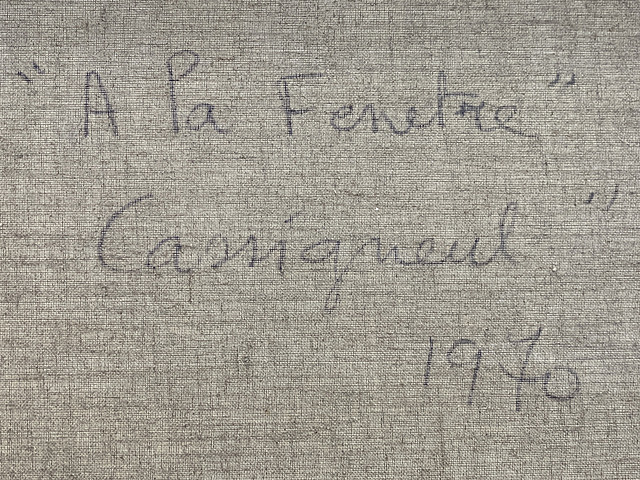 "A la Fenetre"
Cassigneul
1970